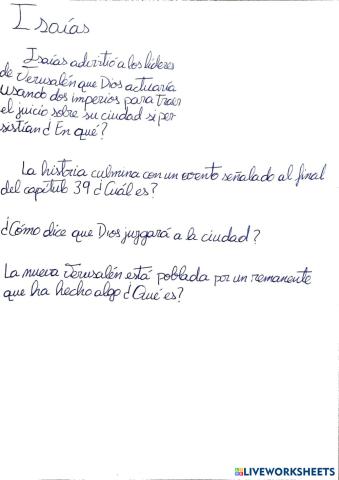 Isaías
Isaías advirtió a los líderes
de Jerusalén que Dios actuaría
usando dos imperios para traer
el juicio sobre su ciudad si per
sistían ¿En qué?
La historia culmina con un evento señalado al final
del capítulo 39 ¿Cuál es?
¿Cómo dice que Dios juzgará a la ciudad?
La nueva Jerusalén está poblada por un remanente
que ha hecho algo ¿Qué es?
LIVEWORKSHEETS